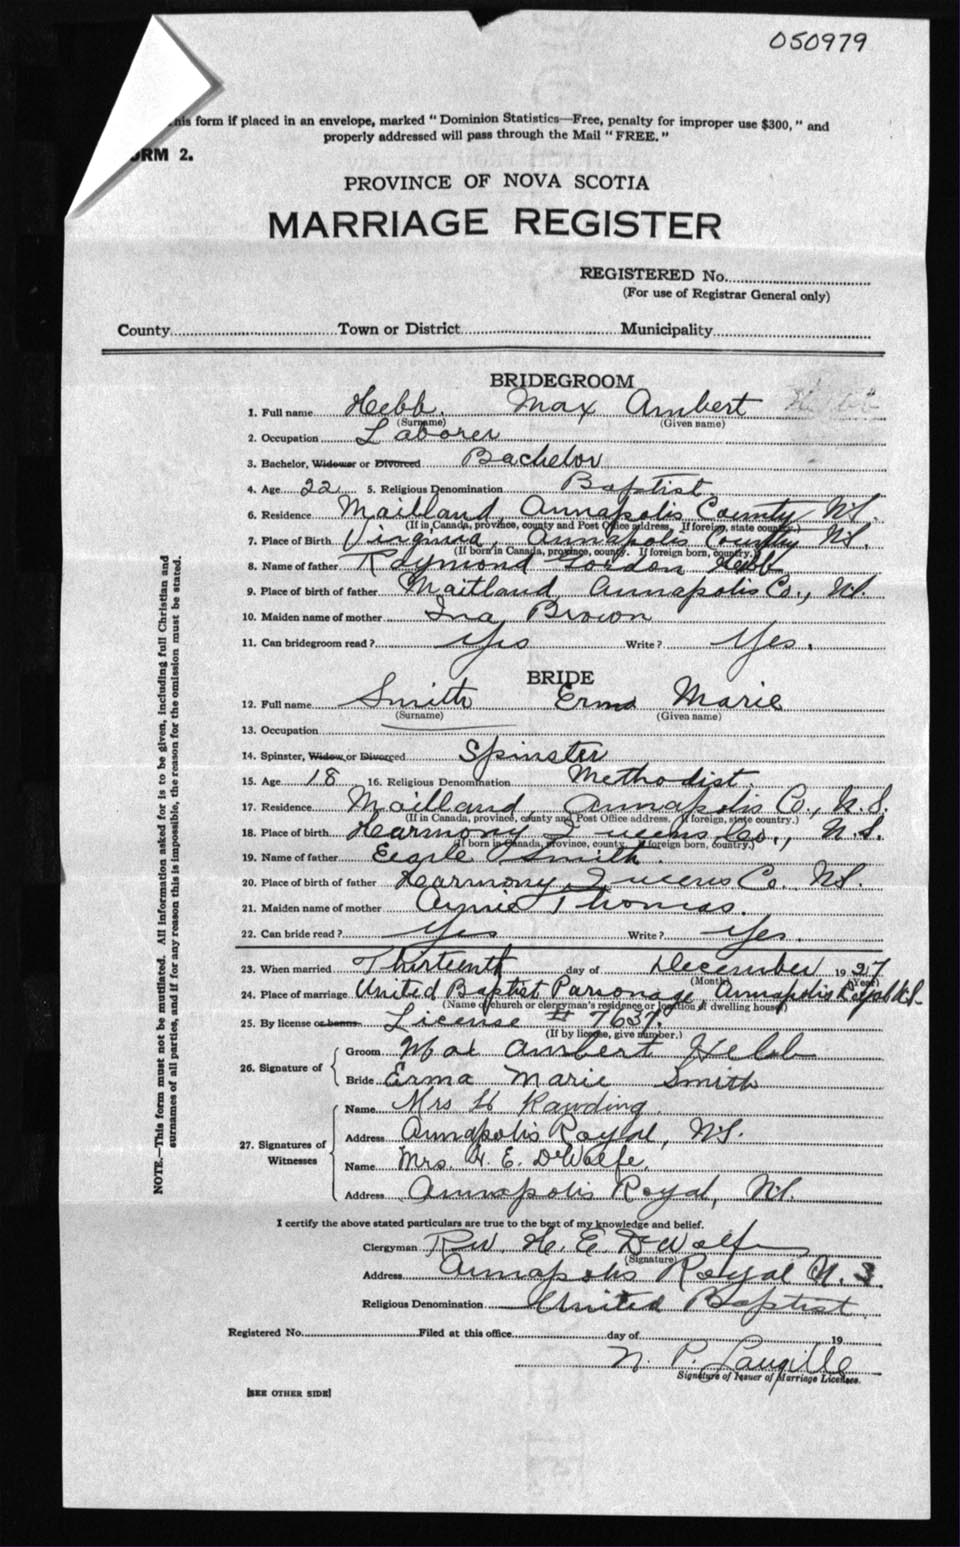 050979
his form if placed in an envelope, marked "Dominion Statistics—Free, penalty for improper use $300," and
properly addressed will pass through the Mail "FREE."
ORM 2.
PROVINCE OF NOVA SCOTIA
MARRIAGE REGISTER
REGISTERED No.
(For use of Registrar General only)
County Town or District Municipality
BRIDEGROOM
1. Full name Hebb. Max Ambert
(Surname) (Given name)
2. Occupation Laborer
3. Bachelor, Widower or Divorced Bachelor
4. Age 22 5. Religious Denomination Baptist
6. Residence Maitland, Annapolis County NS.
(If in Canada, province, county and Post Office address. If foreign, state country.)
7. Place of Birth Virginia, Annapolis County NS.
(If born in Canada, province, county. If foreign born, country.)
8. Name of father Raymond Gordon Hebb
9. Place of birth of father Maitland, Annapolis Co., NS.
10. Maiden name of mother Ina Brown
11. Can bridegroom read? Yes Write? Yes.
BRIDE
12. Full name Smith Erma Marie
(Surname) (Given name)
13. Occupation
14. Spinster, Widow or Divorced Spinster
15. Age 18 16. Religious Denomination Methodist.
17. Residence Maitland, Annapolis Co., N.S.
(If in Canada, province, county and Post Office address. If foreign, state country.)
18. Place of birth Harmony Queens Co., N.S.
(If born in Canada, province, county. If foreign born, country.)
19. Name of father Smith.
20. Place of birth of father Harmony, Queens Co. NS.
21. Maiden name of mother Annie Thomas.
22. Can bride read? Yes Write? Yes.
23. When married Thirteenth day of December 1927
(Month) (Year)
24. Place of marriage United Baptist Parsonage, Annapolis Royal N.S.
(Name of church or clergyman's residence or location if dwelling house)
25. By license or banns License # 7637.
(If by license, give number.)
26. Signature of Groom Max Ambert Hebb
Bride Erma Marie Smith
27. Signatures of Witnesses Name Mrs H Rawding.
Address Annapolis Royal, NS.
Name Mrs. H. E. DeWolfe,
Address Annapolis Royal, NS.
I certify the above stated particulars are true to the best of my knowledge and belief.
Clergyman Rev. H. E. DeWolfe
(Signature)
Address Annapolis Royal N.S.
Religious Denomination United Baptist.
Registered No. Filed at this office day of 19
N. P. Langille
Signature of Issuer of Marriage Licenses.
[SEE OTHER SIDE]
NOTE.—This form must not be mutilated. All information asked for is to be given, including full Christian and
surnames of all parties, and if for any reason this is impossible, the reason for the omission must be stated.